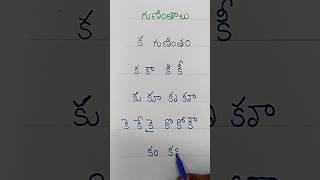 గుణింతాలు
క గుణింతం
క కా కి కీ
కు కూ కృ కౄ
కె కే కై కొ కో కౌ
కం కః